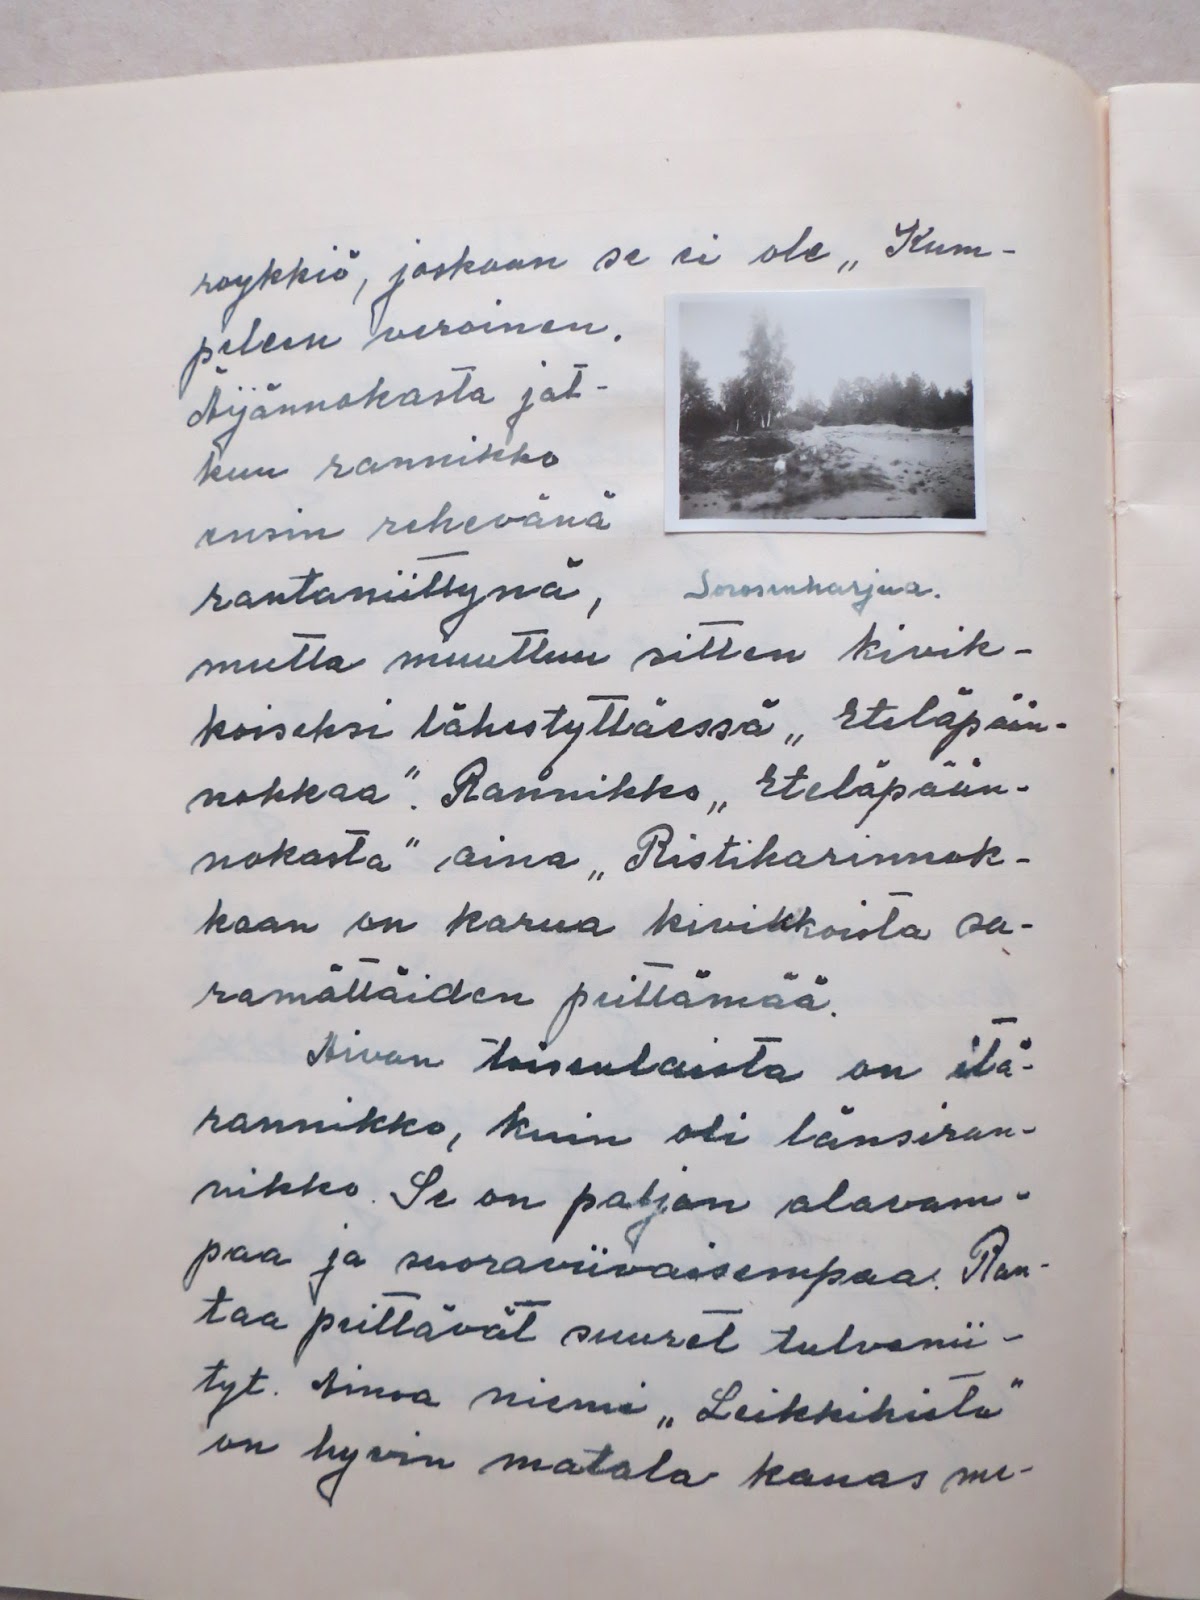 roykkiö, joskaan se ei ole „Kum-
peleen veroinen.
Äijännokasta jat-
kuu rannikko
ensin rehevänä
rantaniittynä,
Sorosenharjua.
mutta muuttuu sitten kivik-
koiseksi lähestyttäessä „Eteläpään-
nokkaa". Rannikko „Eteläpään-
nokasta" aina „Ristikarinnok-
kaan on karua kivikkoista sa-
ramättäiden peittämää.
Aivan toisenlaista on itä-
rannikko, kuin oli länsiran-
nikko. Se on paljon alavam-
paa ja suoraviivaisempaa. Ran-
taa peittävät suuret tulvanii-
tyt. Ainoa niemi „Leikkihieta"
on hyvin matala kauas me-